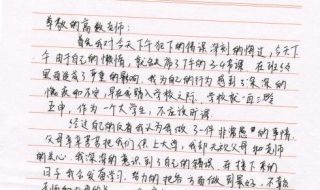 尊敬的高数老师:
首先我对今天下午犯下的错误深刻的悔过,今天下
午由于自己的懒惰,就缺席了下午的3、4节课,在班级
里面造成了严重的影响,我为自己的行为感到了深深的
愧疚和不安,早在我踏入学校之际,学校就一而三
五申,作为一个大学生,不应该旷课
经过自己的反省我认为我做了一件非常愚蠢的事情.
父母辛辛苦苦把我们供上大学,我却无视父母和老师
的关心,我深深的意识到了自己的错误,在接下来的
日子我会发奋学习,努力的把各方面做到最好,不辜负